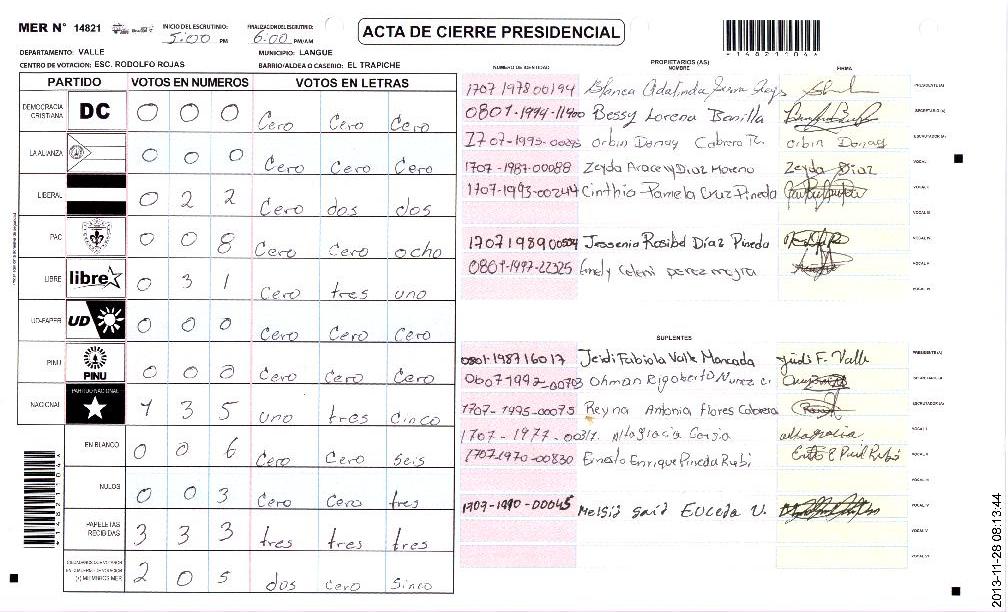 MER N° 14821 INICIO DEL ESCRUTINIO: 5:00 PM FINALIZACION DEL ESCRUTINIO: 6:00 PM/AM
ACTA DE CIERRE PRESIDENCIAL
*14821104*
DEPARTAMENTO: VALLE MUNICIPIO: LANGUE
CENTRO DE VOTACION: ESC. RODOLFO ROJAS BARRIO/ALDEA O CASERIO: EL TRAPICHE
PARTIDO VOTOS EN NUMEROS VOTOS EN LETRAS
DEMOCRACIA CRISTIANA DC 0 0 0 Cero Cero Cero
LA ALIANZA 0 0 0 Cero Cero Cero
LIBERAL 0 2 2 Cero dos dos
PAC 0 0 8 Cero Cero ocho
LIBRE libre 0 3 1 Cero tres uno
UD-FAPER UD 0 0 0 Cero Cero Cero
PINU PINU 0 0 0 Cero Cero Cero
NACIONAL PARTIDO NACIONAL 1 3 5 uno tres cinco
EN BLANCO 0 0 6 Cero Cero seis
NULOS 0 0 3 Cero Cero tres
PAPELETAS RECIBIDAS 3 3 3 tres tres tres
(+) MIEMBROS MER 2 0 5 dos Cero Sinco
*14821104*
PROPIETARIOS (AS)
NUMERO DE IDENTIDAD NOMBRE FIRMA
1707 1978 00194 Blanca Adalinda Reyes PRESIDENTE(A)
0801-1994-11900 Bessy Lorena Bonilla SECRETARIO(A)
1707-1995- Orbin Donay Cabrera Orbin Donay ESCRUTADOR(A)
1707-1987-00088 Zeyda Aracely Diaz Moreno Zeyda Diaz VOCAL I
1707-1993-00244 Cinthio Pamela Cruz Pineda VOCAL II
VOCAL III
1707 1989 00504 Jessenia Rosibel Diaz Pineda VOCAL IV
0801-1997-22325 Emely Celeni perez mejia VOCAL V
VOCAL VI
SUPLENTES
0801-1987 16017 Jeidi Fabiola Valle Moncada Jeidi F. Valle PRESIDENTE(A)
0607 1992-00703 Ohman Rigoberto Nunez SECRETARIO(A)
1707-1995-00075 Reyna Antonia Flores Cabrera ESCRUTADOR(A)
1707-1977-00317 Altagracia altagracia VOCAL I
1707-1970-00830 Ernesto Enrique Pineda Rubi VOCAL II
VOCAL III
1709-1990-00045 Melsid Said Euceda U. VOCAL IV
VOCAL V
VOCAL VI
2013-11-28 08:13:44